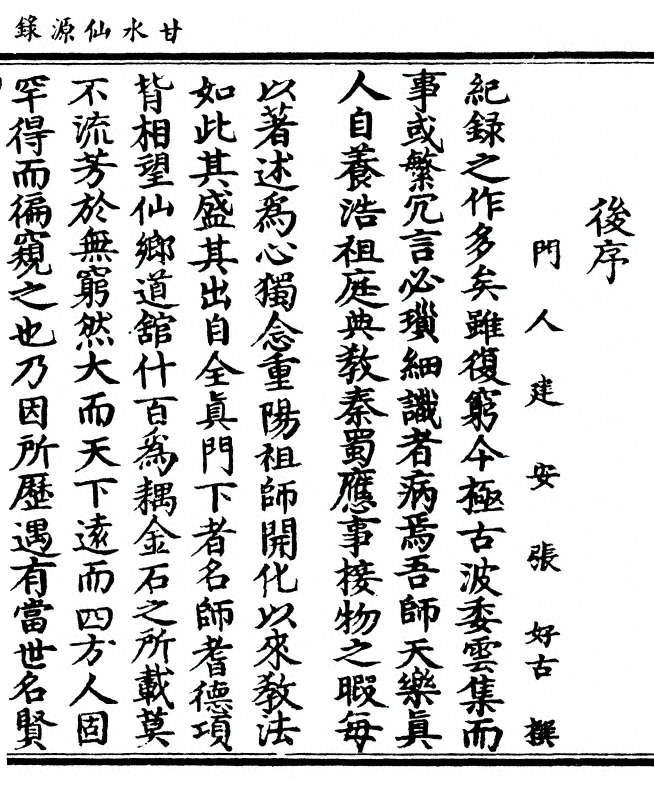 甘水仙源錄
後序
門人建安張好古撰
紀録之作多矣雖復窮今極古波委雲集而
事或繁冗言必瑣細識者病焉吾師天樂眞
人自養浩祖庭典教秦蜀應事接物之暇每
以著述爲心獨念重陽祖師開化以來教法
如此其盛其出自全眞門下者名師耆德項
背相望仙鄉道舘什百爲耦金石之所載莫
不流芳於無窮然大而天下逺而四方人固
罕得而徧窺之也乃因所歷遇有當世名賢